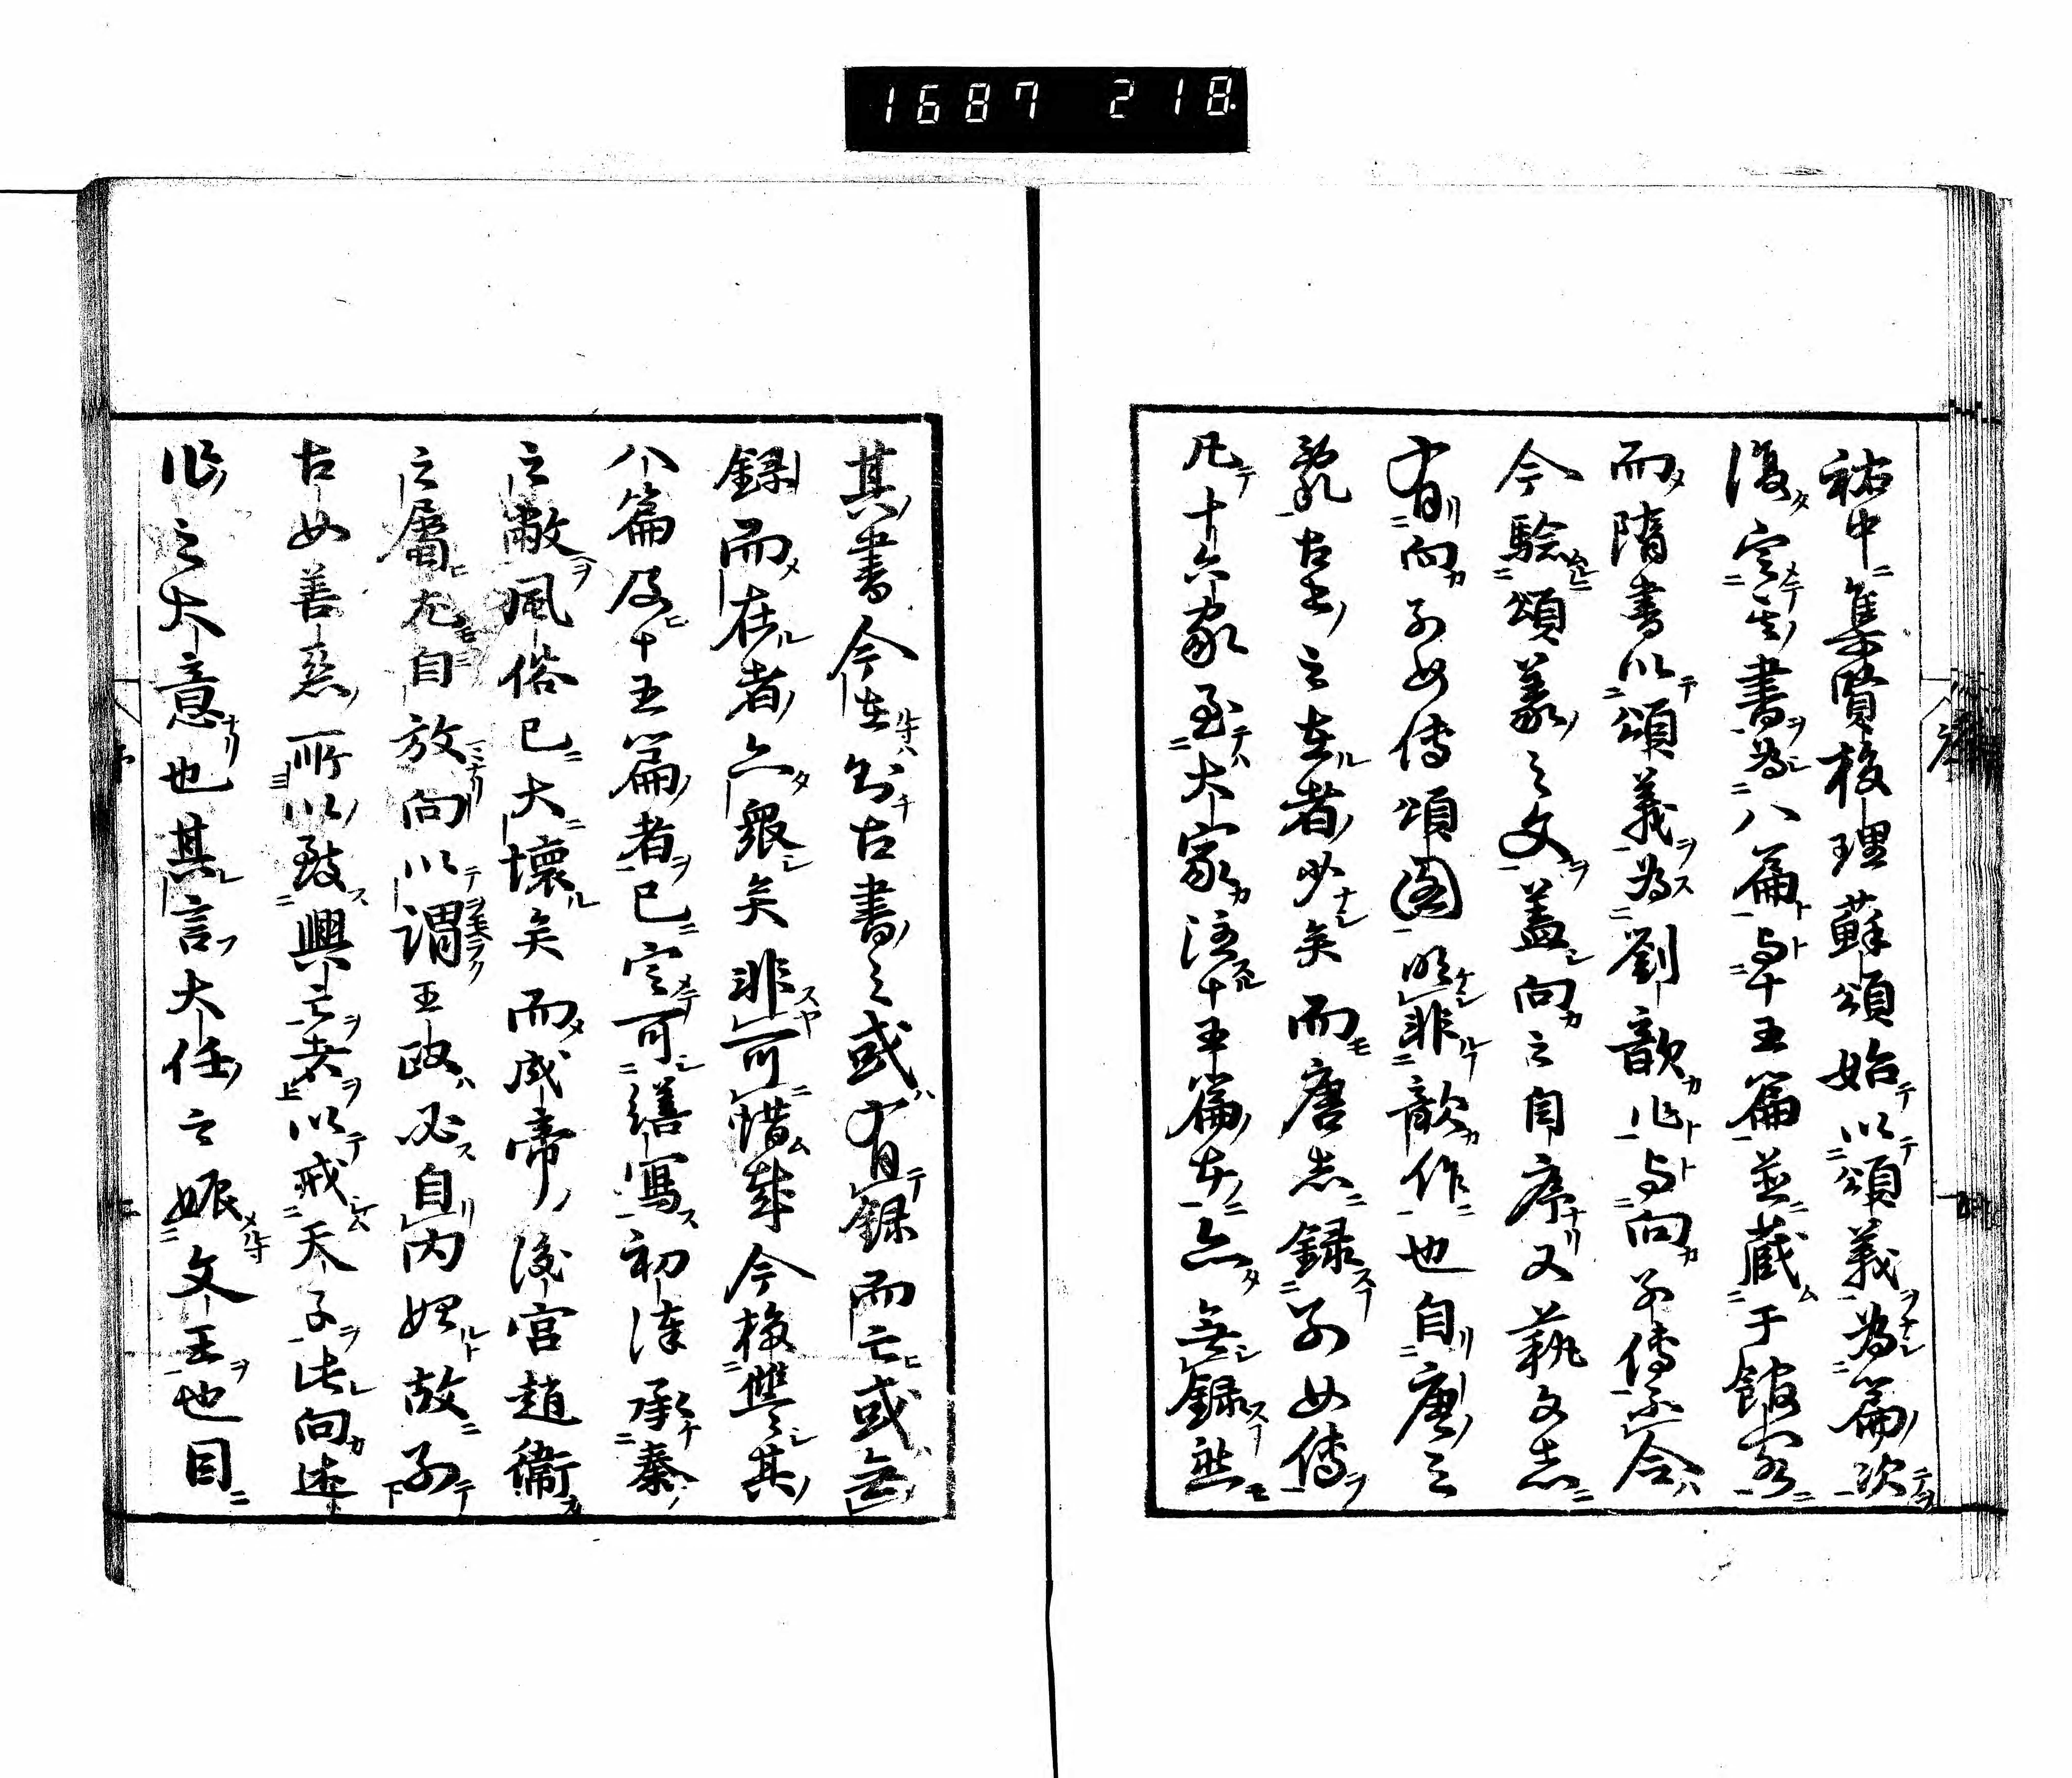 1687 218
祐中集賢校理蘇頌始以頌義為篇次
復定其書為八篇與十五篇並蔵于館閣
而隋書以頌義為劉歆作與向列傳不合
今驗頌義之文蓋向之自序又藝文志
有向列女傳頌図明非歆作也自唐之
亂古書之在者少矣而唐志録列女傳
凡十六家至大家注十五篇者亦無録然
其書今在則古書之或有録而亡或無
録而在者亦衆矣非可惜哉今校讐其
八篇及十五篇者已定可繕寫初漢承秦
之敝風俗已大壞矣而成帝後宮趙衛
之屬尤自放向以謂王政必自内始故列
古女善惡所以致興亡者以戒天子此向述
作之大意也其言大任之娠文王也目